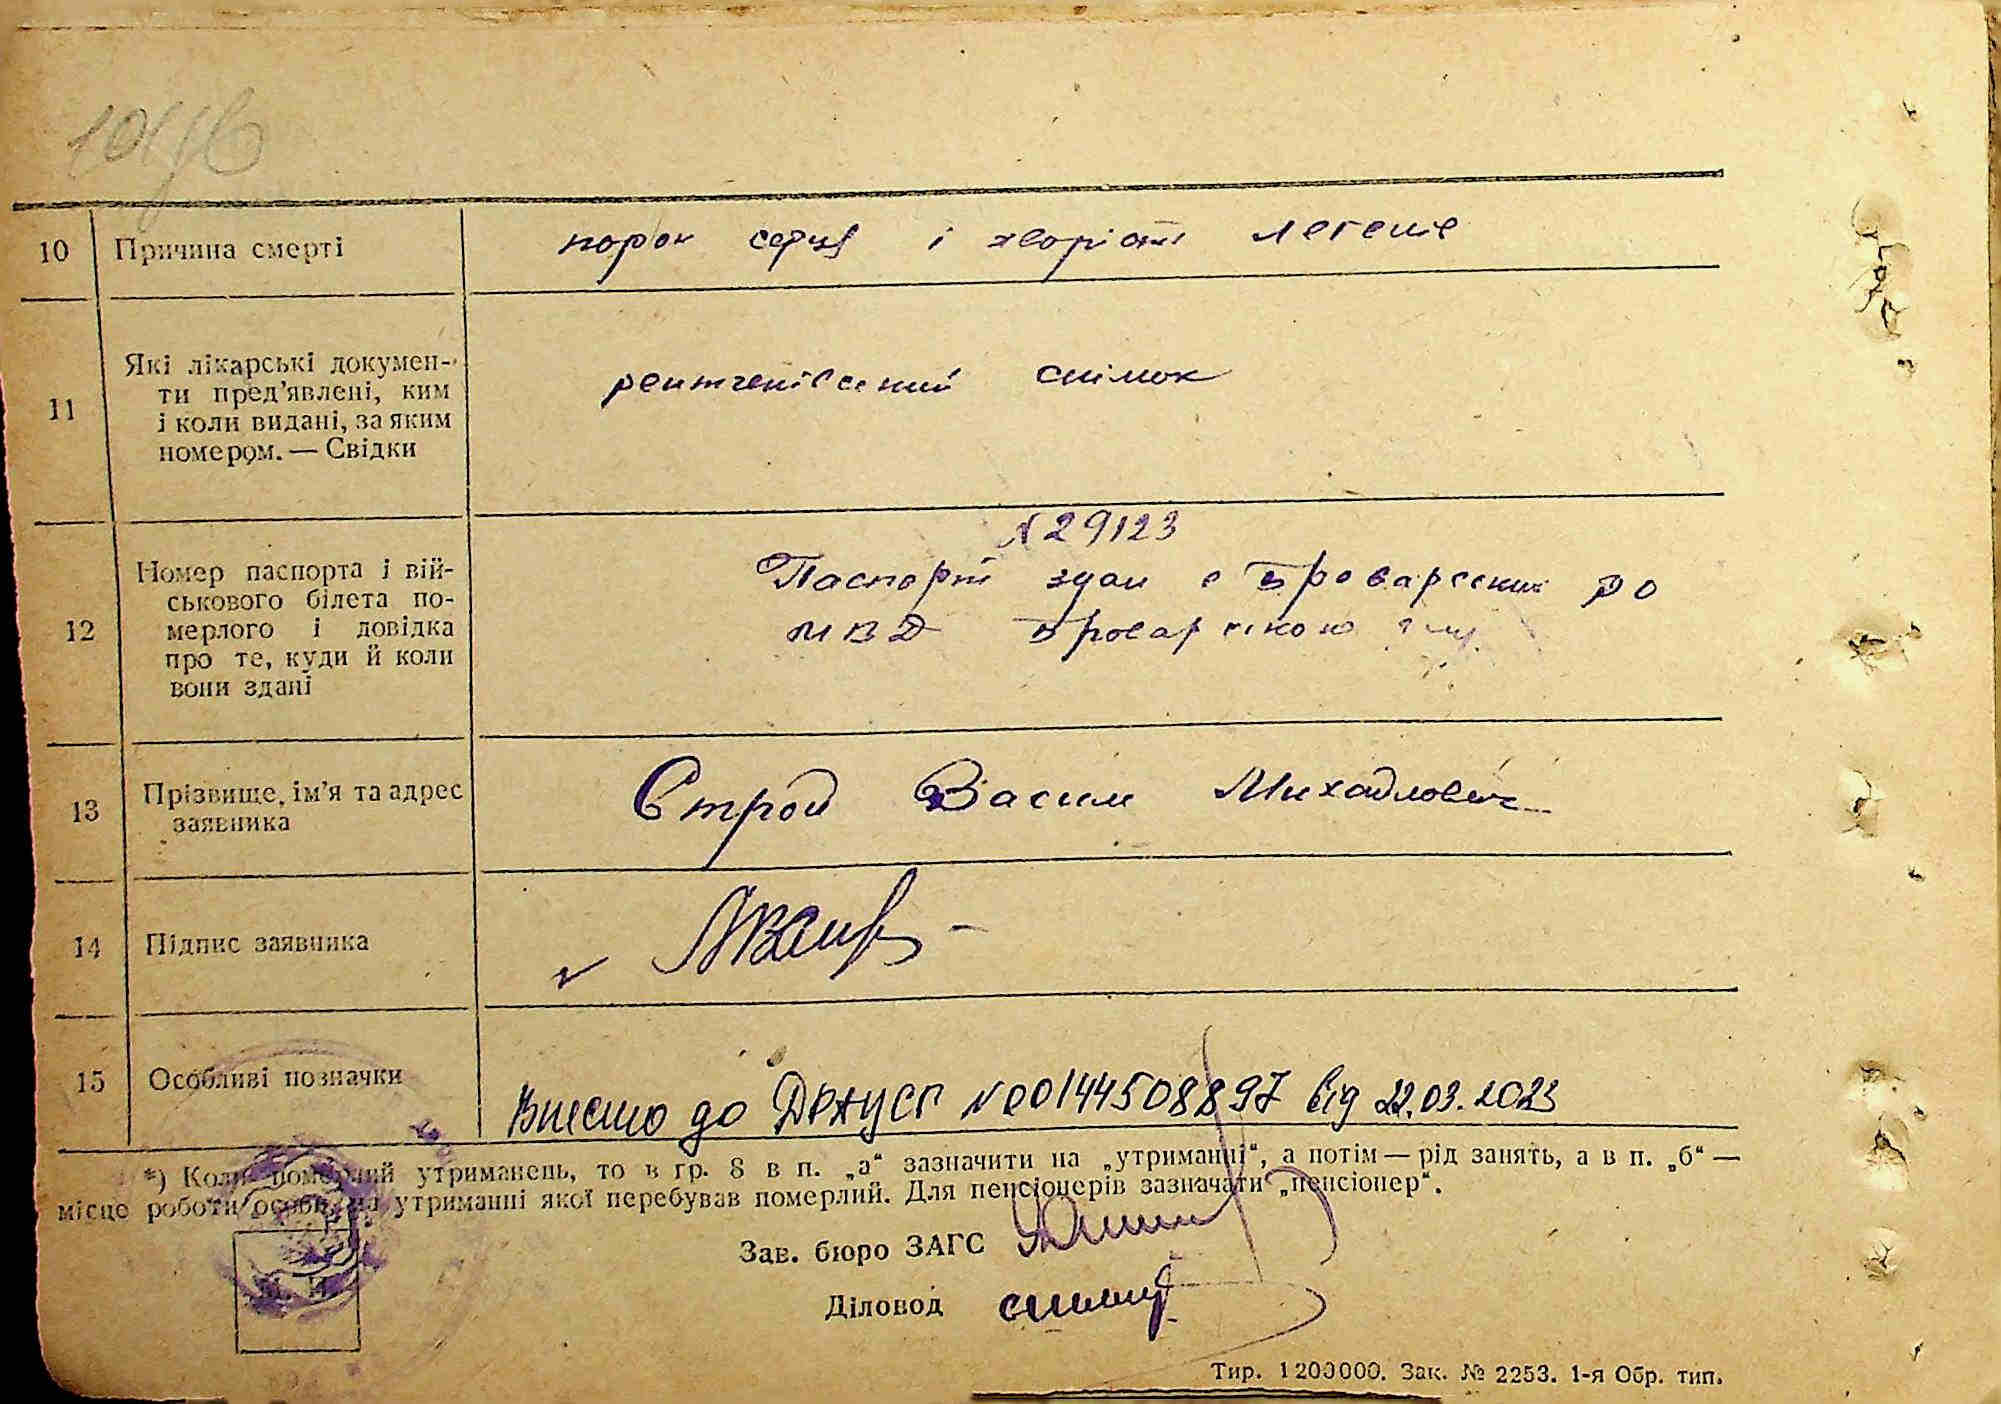 10 Причина смерті порок серця і хворість легень
11 Які лікарські докумен-
ти пред'явлені, ким
і коли видані, за яким
номером. — Свідки
рентгенівський снімок
12 Номер паспорта і вій-
ськового білета по-
мерлого і довідка
про те, куди й коли
вони здані
№ 29123
Паспорт здан в Броварский РО
МВД Броварського
13 Прізвище, ім'я та адрес
заявника
Строй Васил Михайлович
14 Підпис заявника
15 Особливі позначки
Внесено до ДРАЦСГ №00144508897 від 22.03.2023
*) Коли померлий утриманець, то в гр. 8 в п. „а“ зазначити на „утриманні“, а потім — рід занять, а в п. „б“ —
місце роботи особи, на утриманні якої перебував померлий. Для пенсіонерів зазначати „пенсіонер“.
Зав. бюро ЗАГС
Діловод
Тир. 1200000. Зак. № 2253. 1-я Обр. тип.